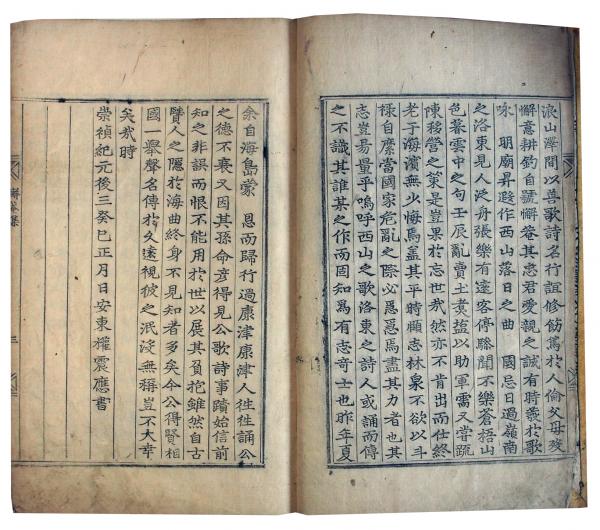 浪山澤間以善歌詩名行誼修飭篤於人倫父母歿
懈意耕釣自號懈菴其忠君愛親之誠有時發於歌
咏 明廟昇遐作西山落日之曲 國忌日過嶺南
之洛東見人泛舟張樂有遠客停驂聞不樂蒼梧山
色暮雲中之句壬辰亂賣土煑塩以助軍需又嘗疏
陳務營之策是豈果於忘世哉然亦不肯出而仕終
老于海濱無少悔焉盖其平時顧志林泉不欲以斗
祿自縻當國家危亂之際必思爲焉盡其力者也其
志豈易量乎嗚呼西山之歌洛東之詩人或誦而傳
之不識其誰某之作而固知爲有志奇士也昨年夏
余自海島蒙 恩而歸行過康津康津人徃徃誦公
之德不衰又因其孫命彦得見公歌詩事蹟始信前
知之非誤而恨不能用於世以展其負抱雖然自古
賢人之隱於海曲終身不見知者多矣今公得賢相
國一擧聲名傳於久遠視彼之泯沒無稱豈不大幸
矣哉時
崇禎紀元後三癸巳正月日安東權震應書
懈菴集
三